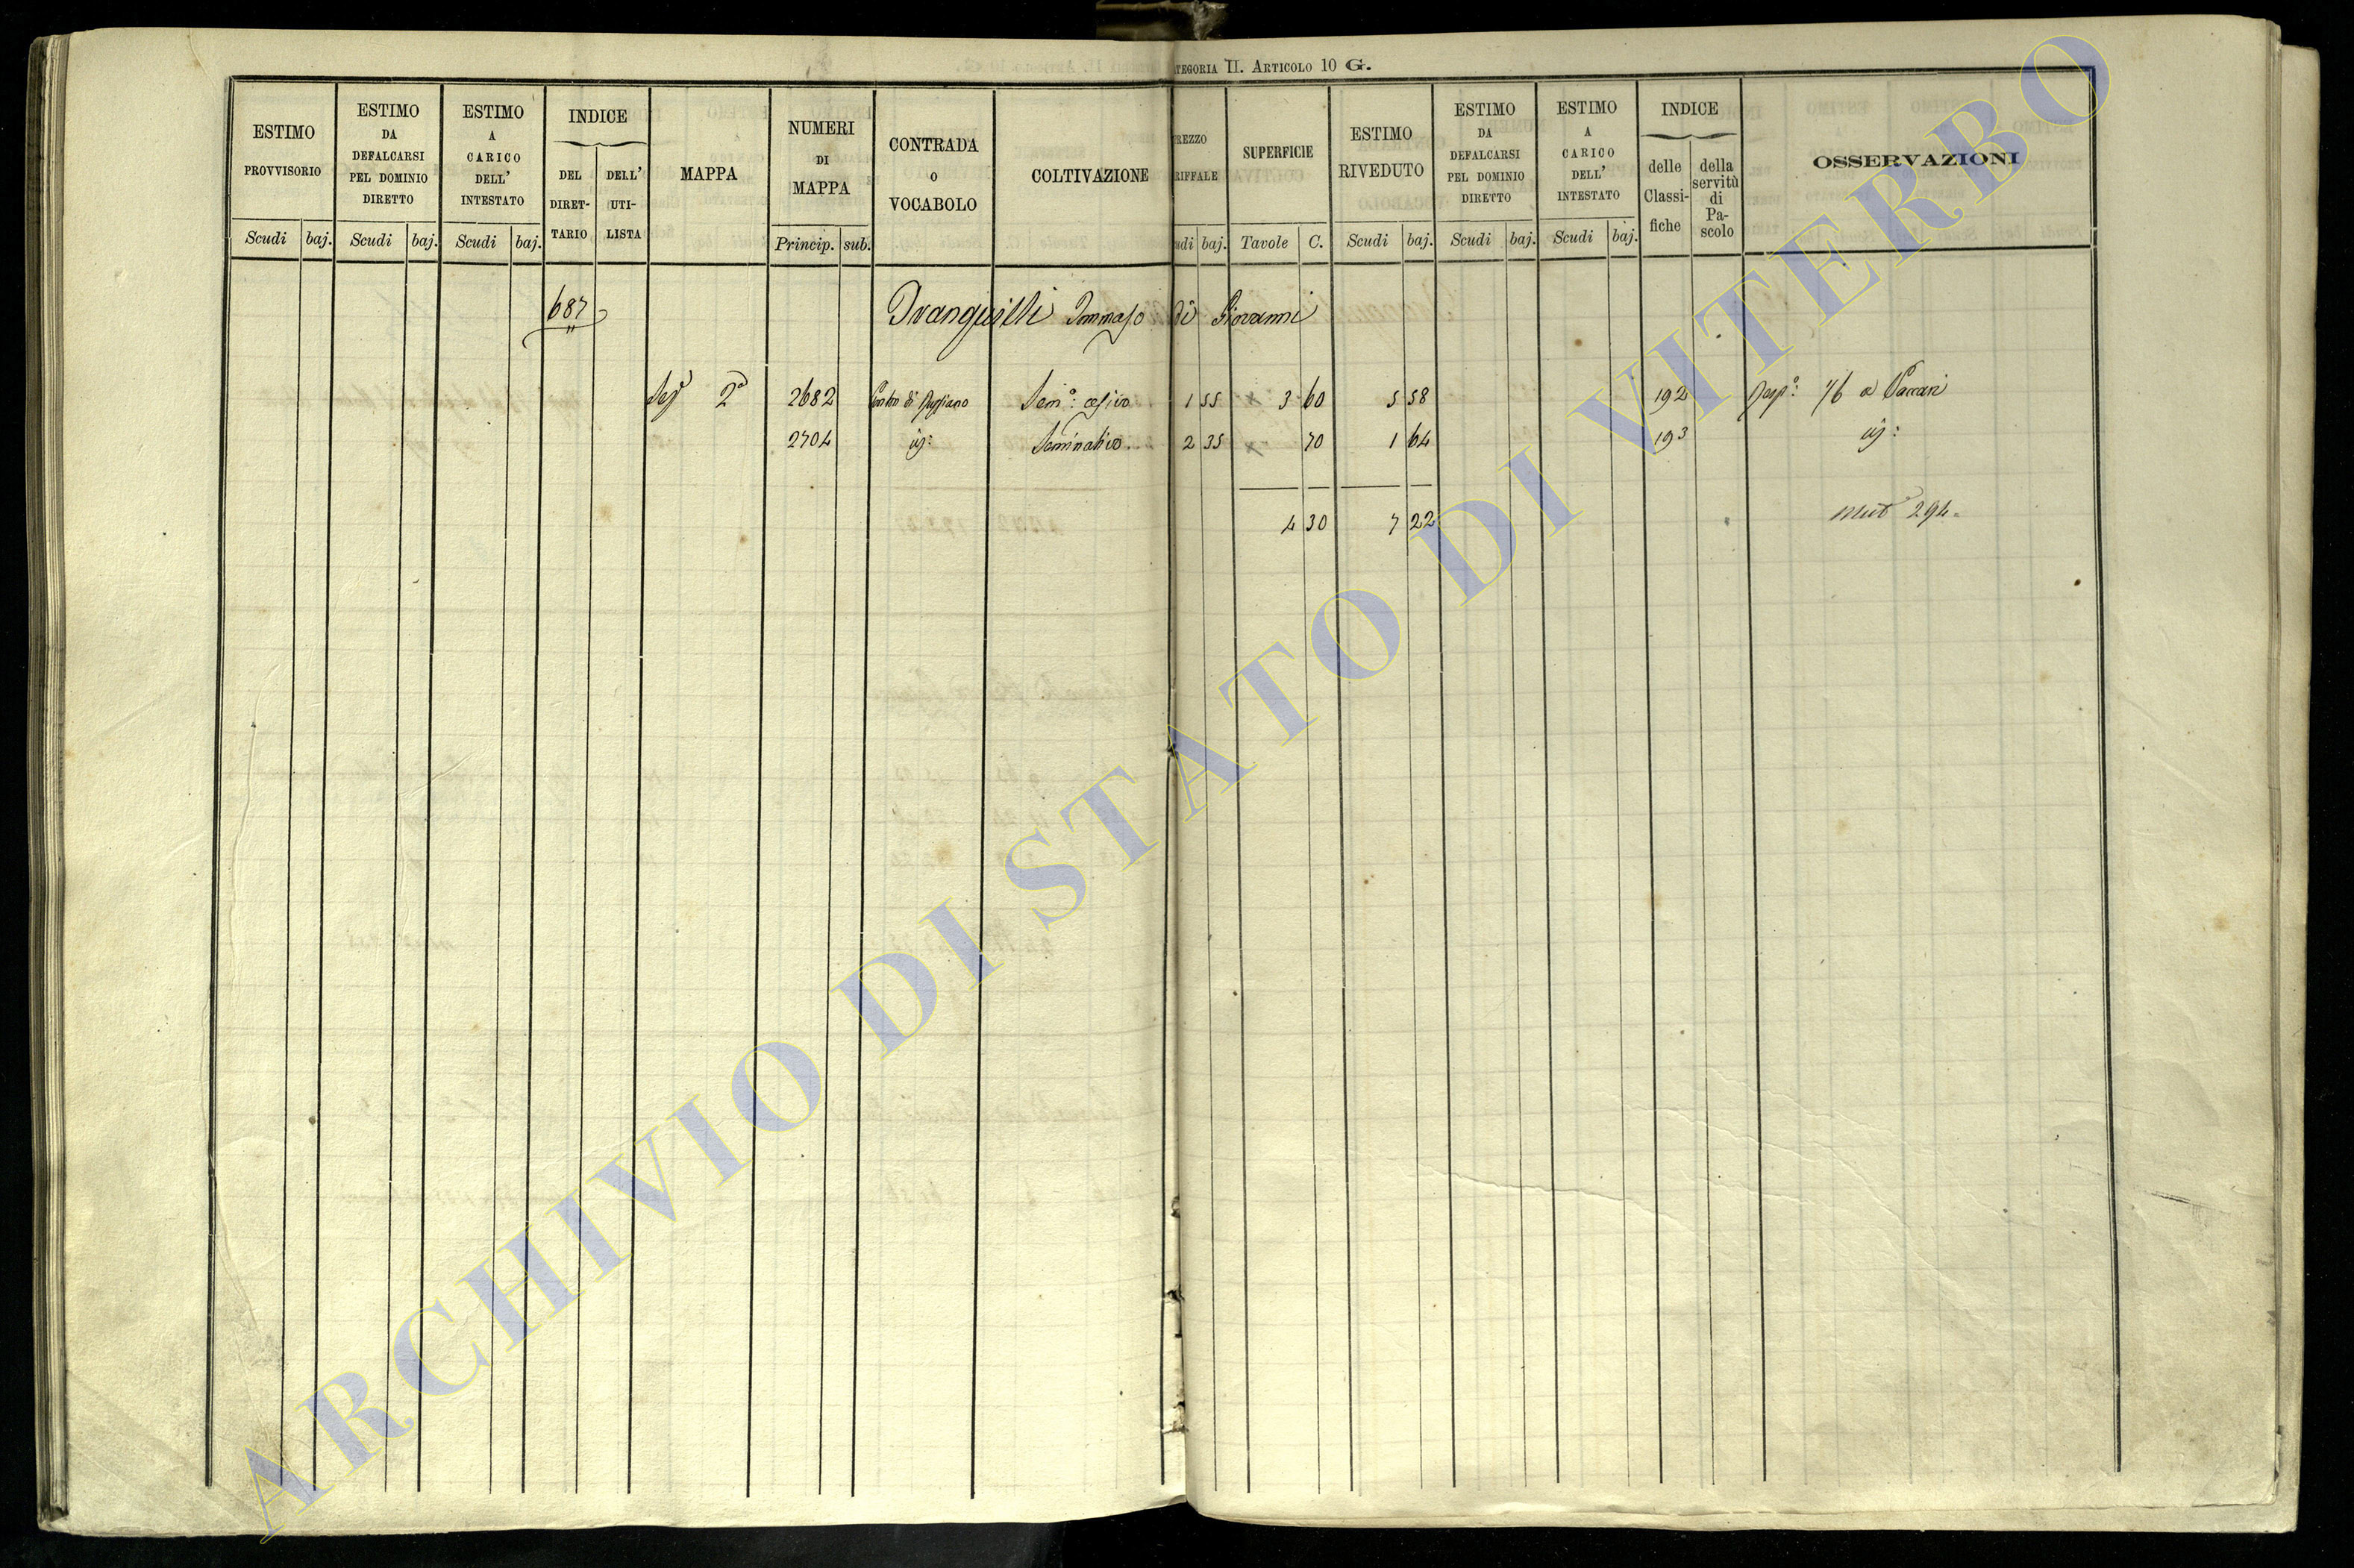 TEGORIA II. ARTICOLO 10 G.
ESTIMO PROVVISORIO
Scudi baj.
ESTIMO DA DEFALCARSI PEL DOMINIO DIRETTO
Scudi baj.
ESTIMO A CARICO DELL' INTESTATO
Scudi baj.
INDICE
DEL DIRET-TARIO
DELL' UTI-LISTA
MAPPA
NUMERI DI MAPPA
Princip. sub.
CONTRADA O VOCABOLO
COLTIVAZIONE
REZZO RIFFALE
udi baj.
SUPERFICIE
Tavole C.
ESTIMO RIVEDUTO
Scudi baj.
ESTIMO DA DEFALCARSI PEL DOMINIO DIRETTO
Scudi baj.
ESTIMO A CARICO DELL' INTESTATO
Scudi baj.
INDICE
delle Classi-fiche
della servitù di Pa-scolo
OSSERVAZIONI
687 Tranquilli Tommaso di Giovanni
Sez 2ª 2682 di Semo: cesivo 1 55 3 60 5 58 192 a Vaccari
2704 id: Seminativo. 2 35 70 1 64 193 id:
4 30 7 22 294
ARCHIVIO DI STATO DI VITERBO